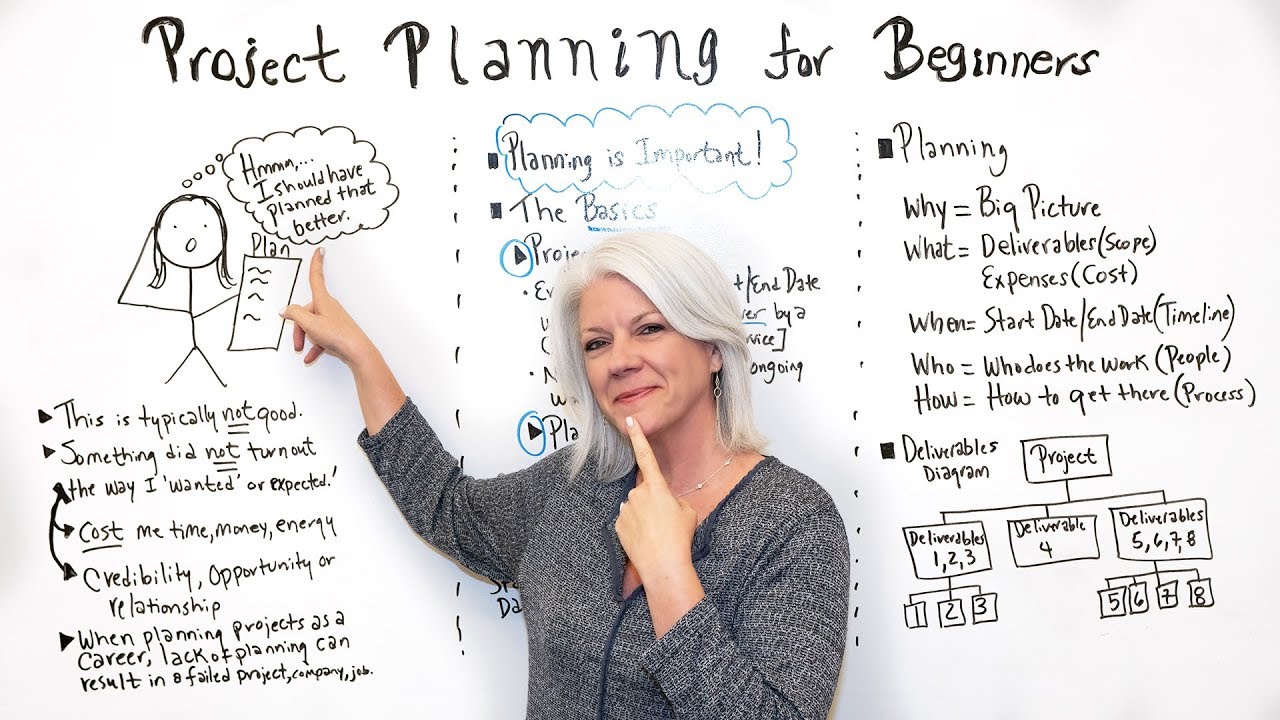 Project Planning for Beginners
Hmmm,...
I should have
planned that
better.
Plan
This is typically not good.
Something did not turn out
the way I 'wanted' or expected.'
Cost me time, money, energy
Credibility, Opportunity or
relationship
When planning projects as a
Career, lack of planning can
result in a failed project, company, job.
Planning is Important!
The Basics
/End Date
by a
ongoing
Planning
Why = Big Picture
What = Deliverables (Scope)
Expenses (Cost)
When = Start Date/End Date (Timeline)
Who = Who does the work (People)
How = How to get there (Process)
Deliverables
Diagram
Project
Deliverables
1,2,3
Deliverable
4
Deliverables
5,6,7,8
1 2 3
5 6 7 8